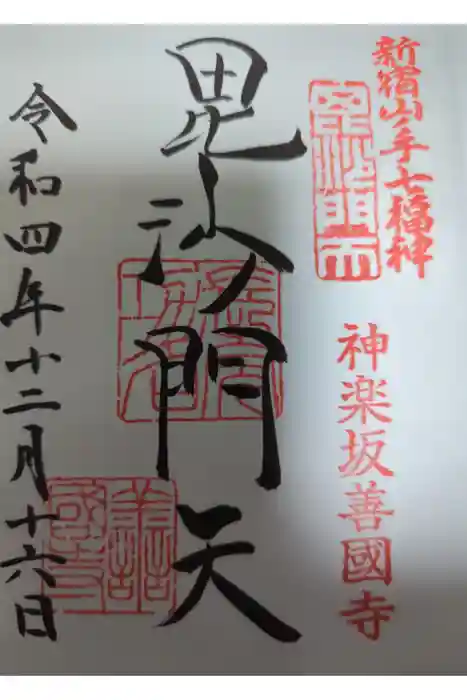 新宿山ノ手七福神
神楽坂善國寺
毘沙門天
令和四年十二月十六日